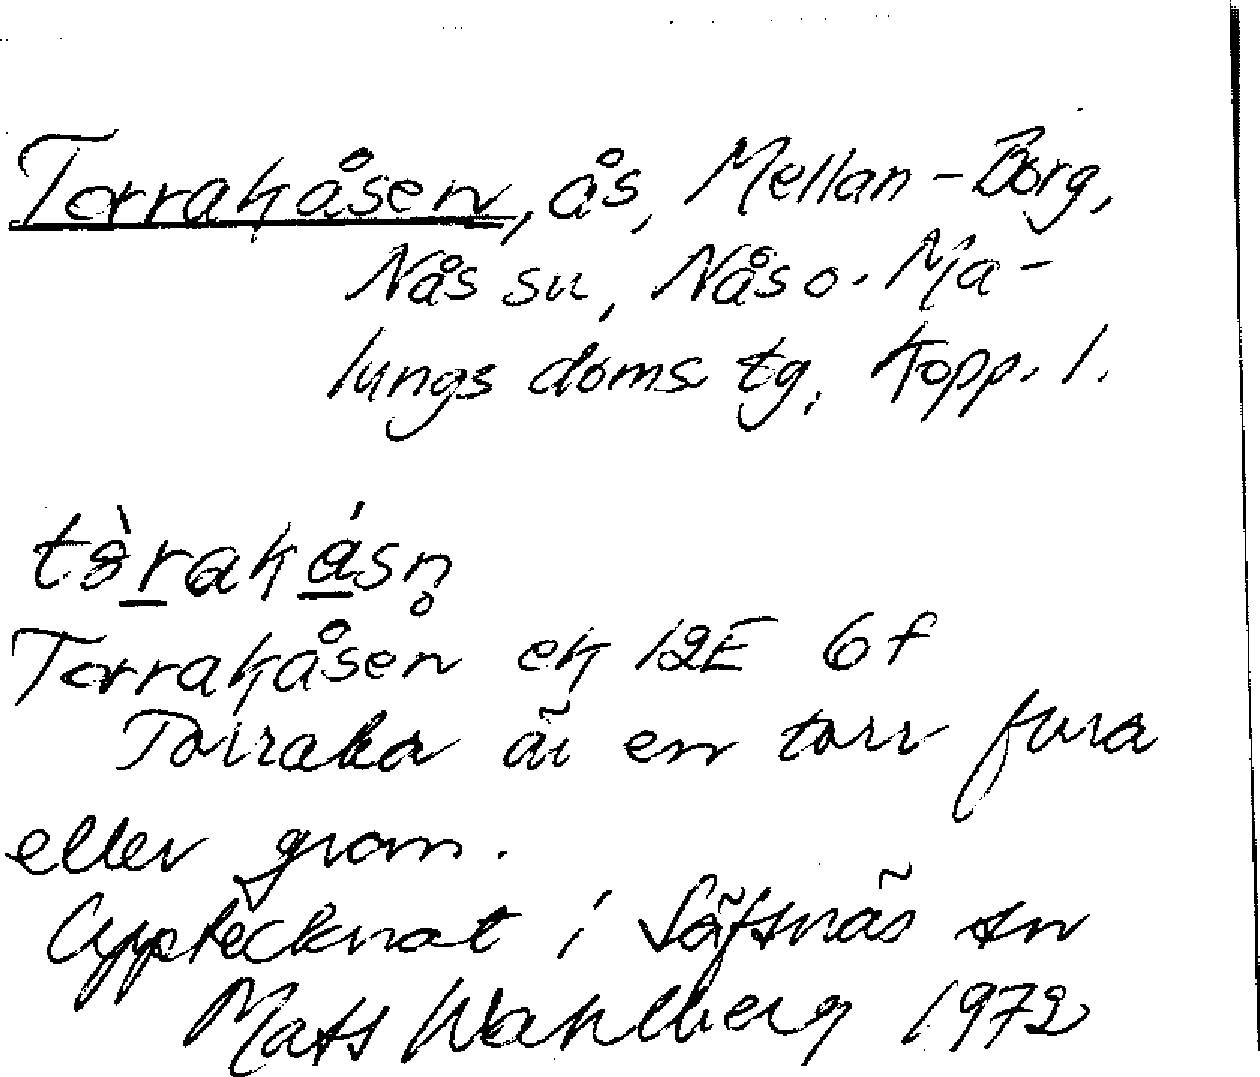 Torrakåsen, ås, Mellan-Borg,
Nås sn, Nås o. Ma-
lungs doms tg, Kopp. l.
tòrakásn̥
Torrakåsen ek 12E 6f
Torraka är en torr fura
eller gran.
Upptecknat i Säfsnäs sn
Mats Wahlberg 1972